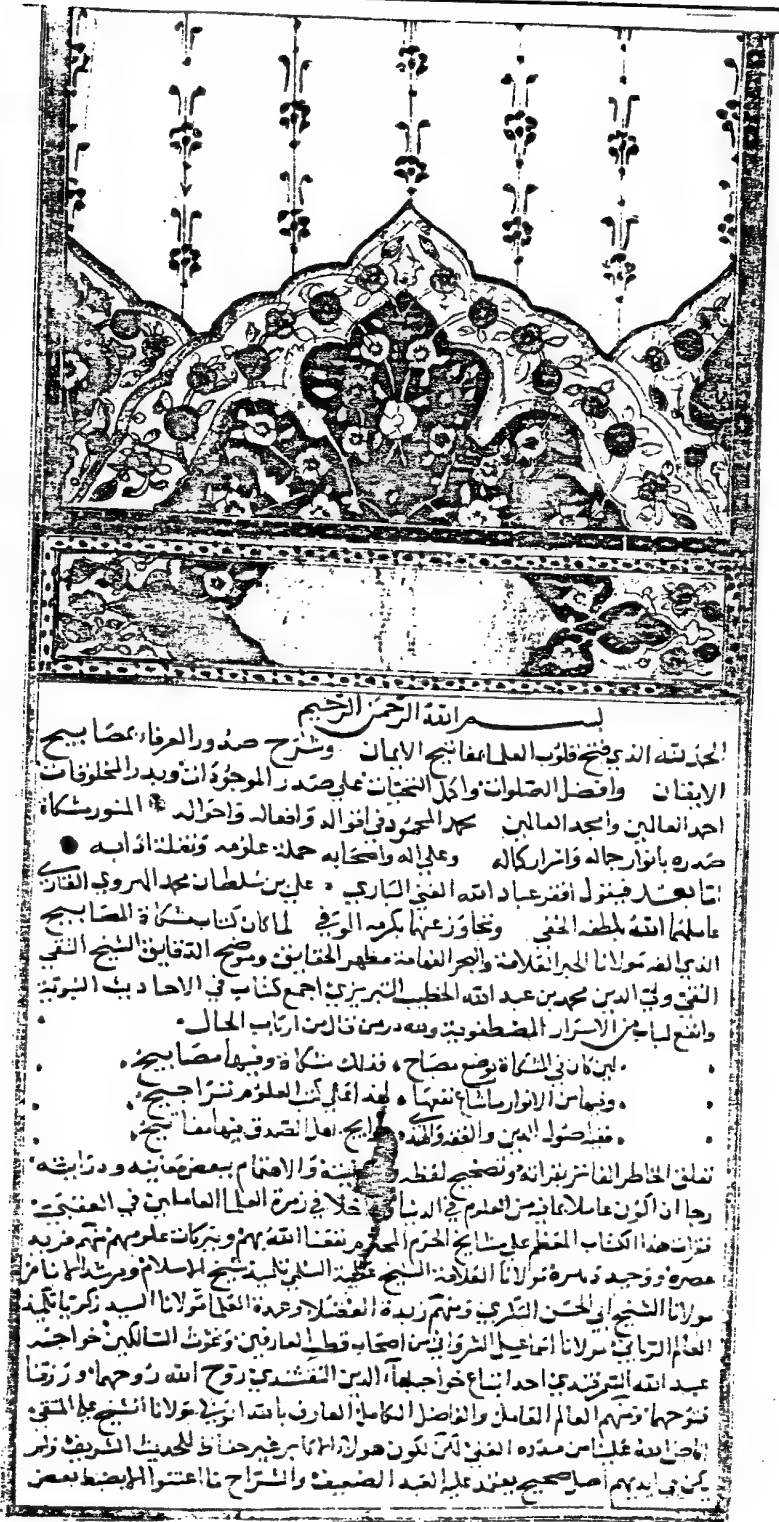 بسم الله الرحمن الرحيم
الحمد لله الذي فتح قلوب العلما بمفاتيح الايمان وشرح صدور العرفاء بمصابيح
الايقان وافضل الصلوات واكمل التحيات على صدر الموجودات وبدر المخلوقات
احمد العالمين وامجد العالمين محمد المحمود في اقواله وافعاله واحواله المنور مشكاة
صدره بانوار جماله واسرار كماله وعلى اله واصحابه حملة علومه ونقلة ادابه
اما بعد فيقول افقر عباد الله الغني الباري علي بن سلطان محمد الهروي القاري
عاملهما الله بلطفه الخفي وتجاوز عنهما بكرمه الوفي لما كان كتاب مشكاة المصابيح
الذي الفه مولانا الحبر العلامة والبحر الفهامة مظهر الحقايق وموضح الدقايق الشيخ التقي
النقي ولي الدين محمد بن عبد الله الخطيب التبريزي اجمع كتاب في الاحاديث النبوية
وانفع لباب من الاسرار المصطفوية ولله در من قال من ارباب الحال
لين كان في المشكاة يوضع مصباح فذلك مشكاة وفيها مصابيح
وفيها من الانوار ما شاع نفعها لهذا على كتب العلوم تراجيح
ففيه اصول الدين والفقه والهدى حوايج اهل الصدق منها مفاتيح
تعلق الخاطر الفاتر بقرائته وتصحيح لفظه والاهتمام ببعض معانيه ودرايته
رجا ان اكون عاملا بما فيه من العلوم في الدنيا داخلا في زمرة العلما العاملين في العقبى
فقرات هذا الكتاب المعظم على مشايخ الحرم المحترم نفعنا الله بهم وببركات علومهم منهم فريد
عصره ووحيد دهره مولانا العلامة الشيخ عطية السلمي تلميذ شيخ الاسلام ومرشد الانام
مولانا الشيخ ابي الحسن البكري ومنهم زبدة الفضلا وعمدة العلما مولانا السيد زكريا تلميذ
العالم الرباني مولانا اسماعيل الشرواني من اصحاب قطب العارفين وغوث السالكين خواجه
عبيد الله السمرقندي احد اتباع خواجه بهاء الدين النقشبندي روح الله روحهما ورزقنا
فتوحهما ومنهم العالم العامل والفاضل الكامل العارف بالله الولي مولانا الشيخ علي المتقي
افاض الله علينا من مدده العلي لكن لكون هولاء الاكابر غير حفاظ للحديث الشريف ولم
يكن في ايديهم اصل صحيح يعتمد عليه العبد الضعيف والشراح ما اعتنوا الا بضبط بعض